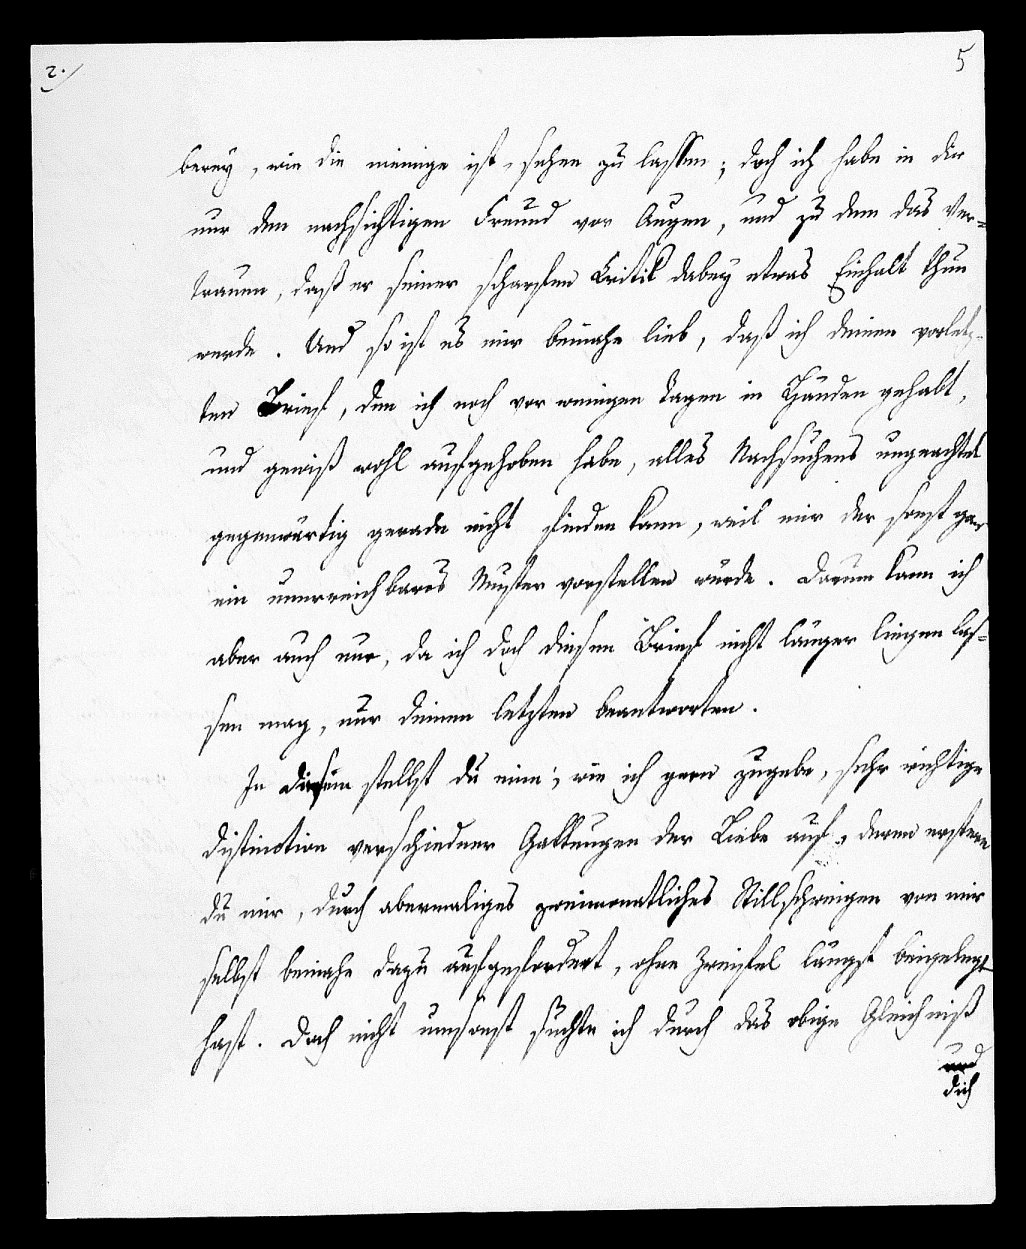 2.)
5
berey, wie die meinige ist, sehen zu lassen; doch ich habe in dir
nur den nachsichtigen Freund vor Augen, und zu dem das Ver-
trauen, daß er seiner scharfen Critik dabey etwas Einhalt thun
werde. Und so ist es mir beinahe lieb, daß ich deinen vorletz-
ten Brief, den ich noch vor wenigen Tagen in Händen gehabt,
und gewiß wohl aufgehoben habe, alles Nachsuchens ungeachtet
gegenwärtig gerade nicht finden kann, weil mir der sonst gar
ein unerreichbares Muster vorstellen würde. Darum kann ich
aber auch nur, da ich doch diesen Brief nicht länger liegen las-
sen mag, nur deinen letzten beantworten.
In diesem stellst du eine, wie ich gern zugebe, sehr richtige
Distinction verschiedner Gattungen der Liebe auf, deren erstere
du mir, durch abermaliges zweimonatliches Stillschweigen von mir
selbst beinahe dazu aufgefordert, ohne Zweifel längst beigelegt
hast. Doch nicht umsonst suchte ich durch das obige Gleichniß
und
dich